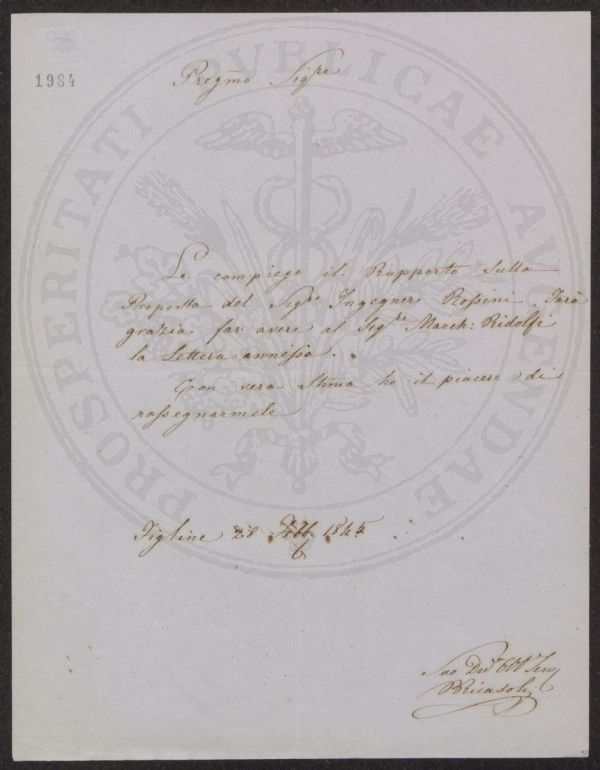 1984
Pregmo Sigre
PROSPERITATI PVBLICAE AVGENDAE
Le compiego il Rapporto sulla
Proposta del Sigr Ingegnere Rossini. Farà
grazia far avere al Sigr March: Ridolfi
la Lettera annessa.
Con vera stima ho il piacere di
rassegnarmele
Figline 28 Febb. 1845
Suo Devo
BRicasoli